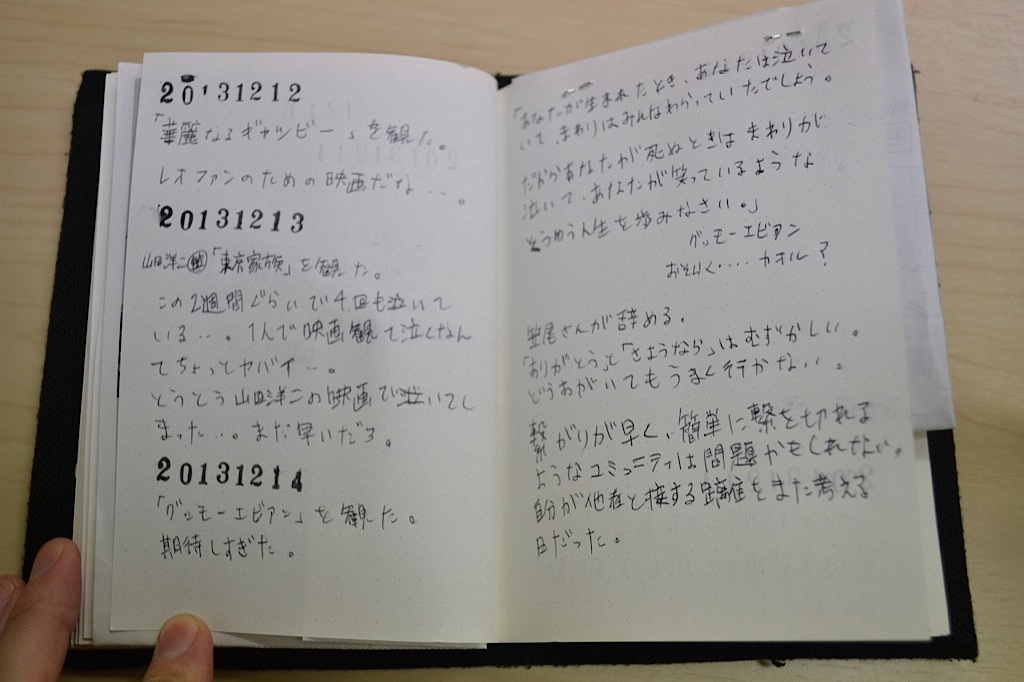 20131212
「華麗なるギャツビー」を観た。
レオファンのための映画だな...。
20131213
山田洋二「東京家族」を観た。
この2週間ぐらいで4回も泣いて
いる...。1人で映画観て泣くなん
てちょっとヤバイ...。
とうとう山田洋二の映画で泣いてし
まった...。まだ早いだろ。
20131214
「グッモーエビアン」を観た。
期待しすぎた。
「あなたが生まれたとき、あなたは泣いて
いて、まわりはみんなわらっていたでしょう。
だからあなたが死ぬときは まわりが
泣いて、あなたが笑っているような
そうゆう人生を歩みなさい。」
グッモーエビアン
おそらく.... カオル?
笠尾さんが辞める。
「ありがとう」と「さようなら」はむずかしい。
どうあがいてもうまく行かない。
繋がりが早く、簡単に繋を切れる
ようなコミュニティは問題かもしれない。
自分が他者と接する距離をまた考える
日だった。